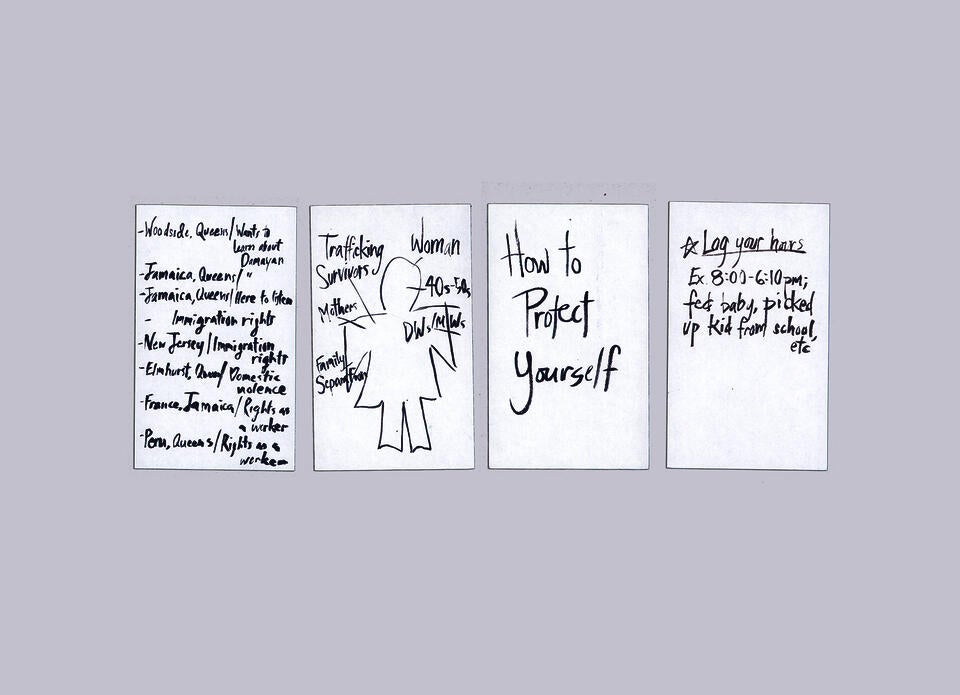 -Woodside, Queens/Wants to
learn about
Damayan
-Jamaica, Queens/ "
-Jamaica, Queens/Here to listen
- Immigration rights
-New Jersey/Immigration
rights
-Elmhurst, Queens/Domestic
violence
-France, Jamaica/Rights as
a worker
-Peru, Queens/Rights as a
worker
Trafficking
Survivors
Woman
40s-50s
Mothers
DWs/MWs
Family
Separation
How to
Protect
Yourself
☆ Log your hours
Ex. 8:00-6:10pm;
fed baby, picked
up kid from school,
etc